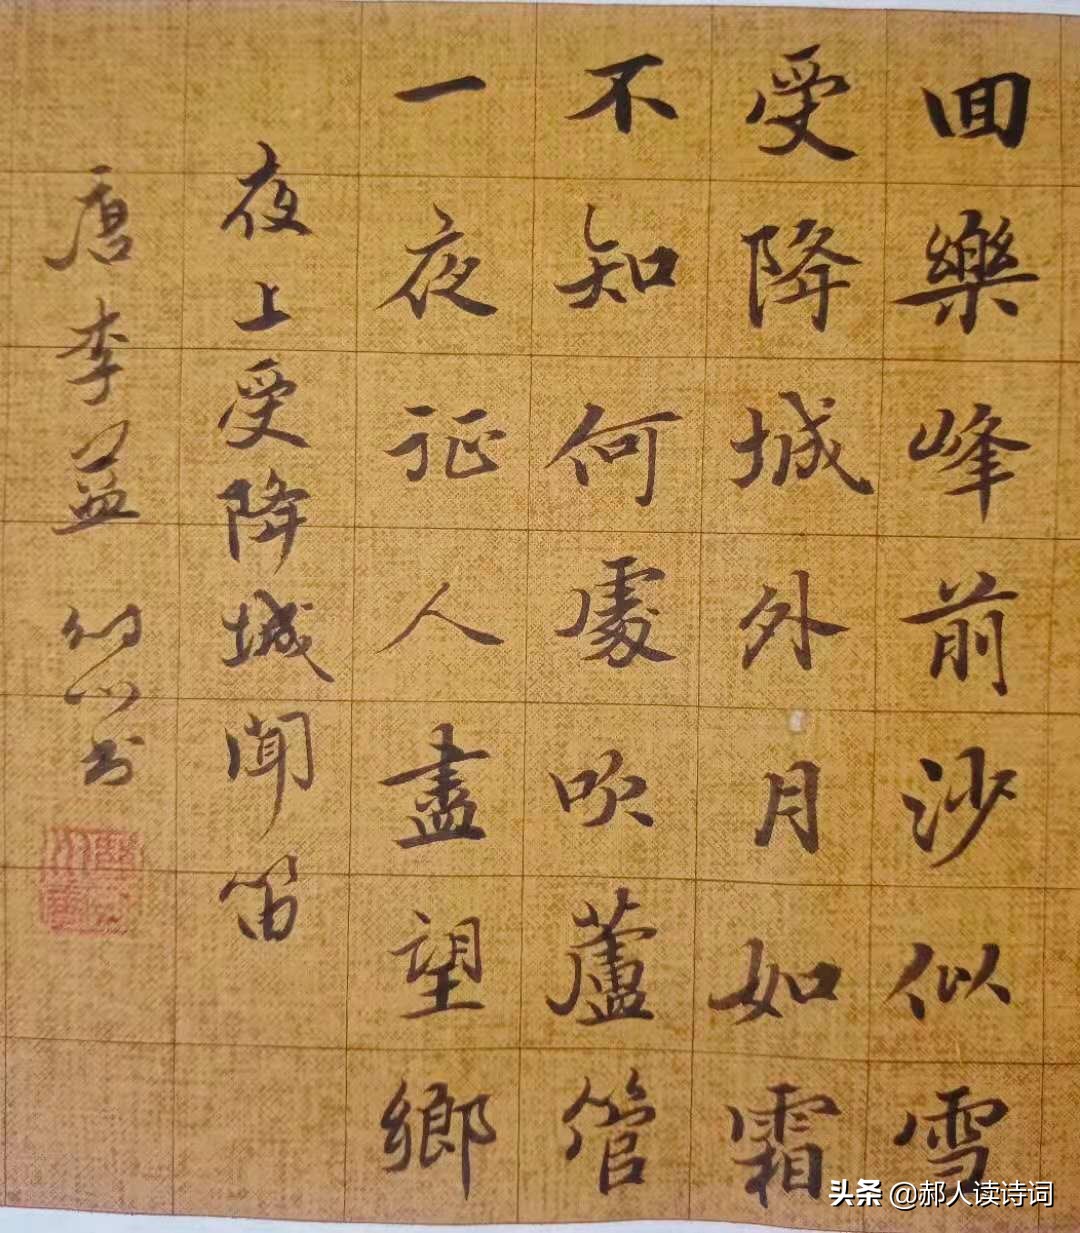 囬樂峰前沙似雪
受降城外月如霜
不知何處吹蘆管
一夜征人盡望鄉
夜上受降城聞笛
唐李益 书
头条 @郝人读诗词